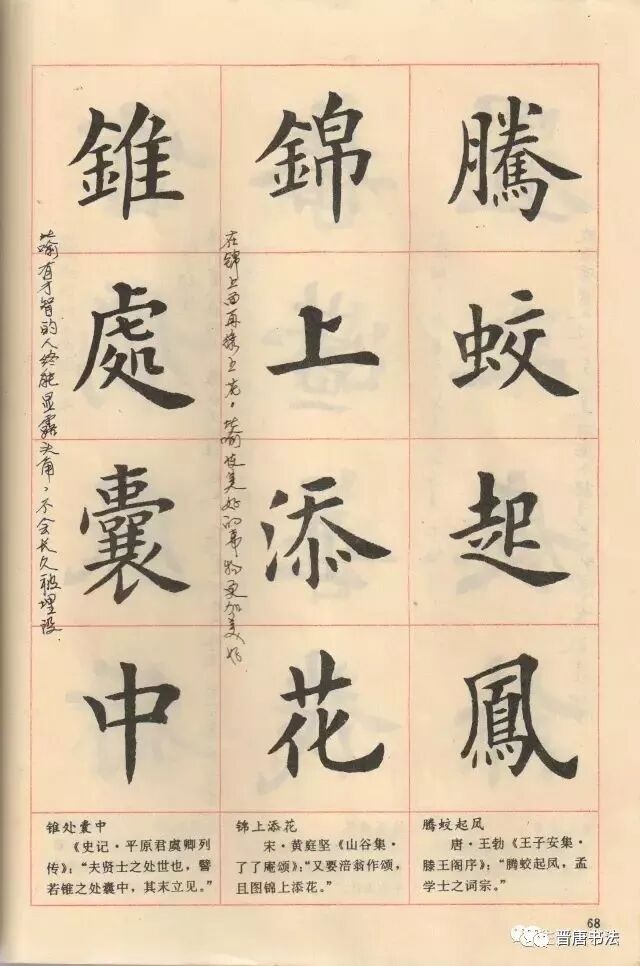 騰蛟起鳳
錦上添花
錐處囊中
在锦上面再绣上花，比喻使美好的事物更加美好
比喻有才智的人终能显露头角，不会长久被埋没
腾蛟起凤
唐·王勃《王子安集·
滕王阁序》：“腾蛟起凤，孟
学士之词宗。”
锦上添花
宋·黄庭坚《山谷集·
了了庵颂》：“又要涪翁作颂，
且图锦上添花。”
锥处囊中
《史记·平原君虞卿列
传》：“夫贤士之处世也，譬
若锥之处囊中，其末立见。”
68
晋唐书法